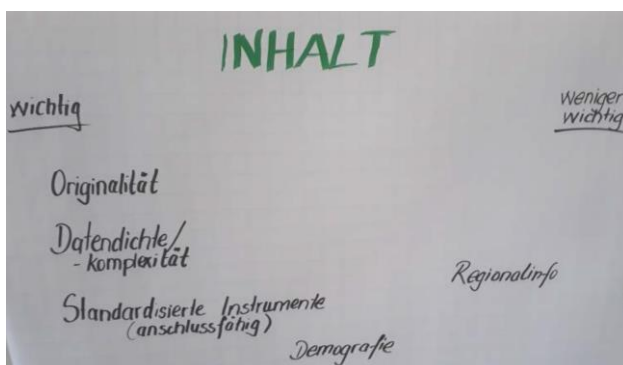 INHALT
wichtig
weniger
wichtig
Originalität
Datendichte/
- komplexität
Regionalinfo
Standardisierte Instrumente
(anschlussfähig)
Demografie